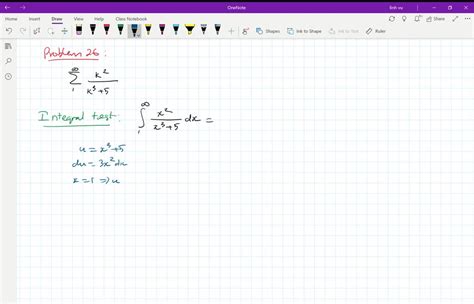 OneNote
linh vu
File Home Insert Draw View Help Class Notebook
Shapes Ink to Shape Ink to Text Math
Problem 26:
∞
∑ k²/(k³+5)
1
Integral test: ∫₁^∞ x²/(x³+5) dx =
u = x³+5
du = 3x²dx
x=1 ⇒ u